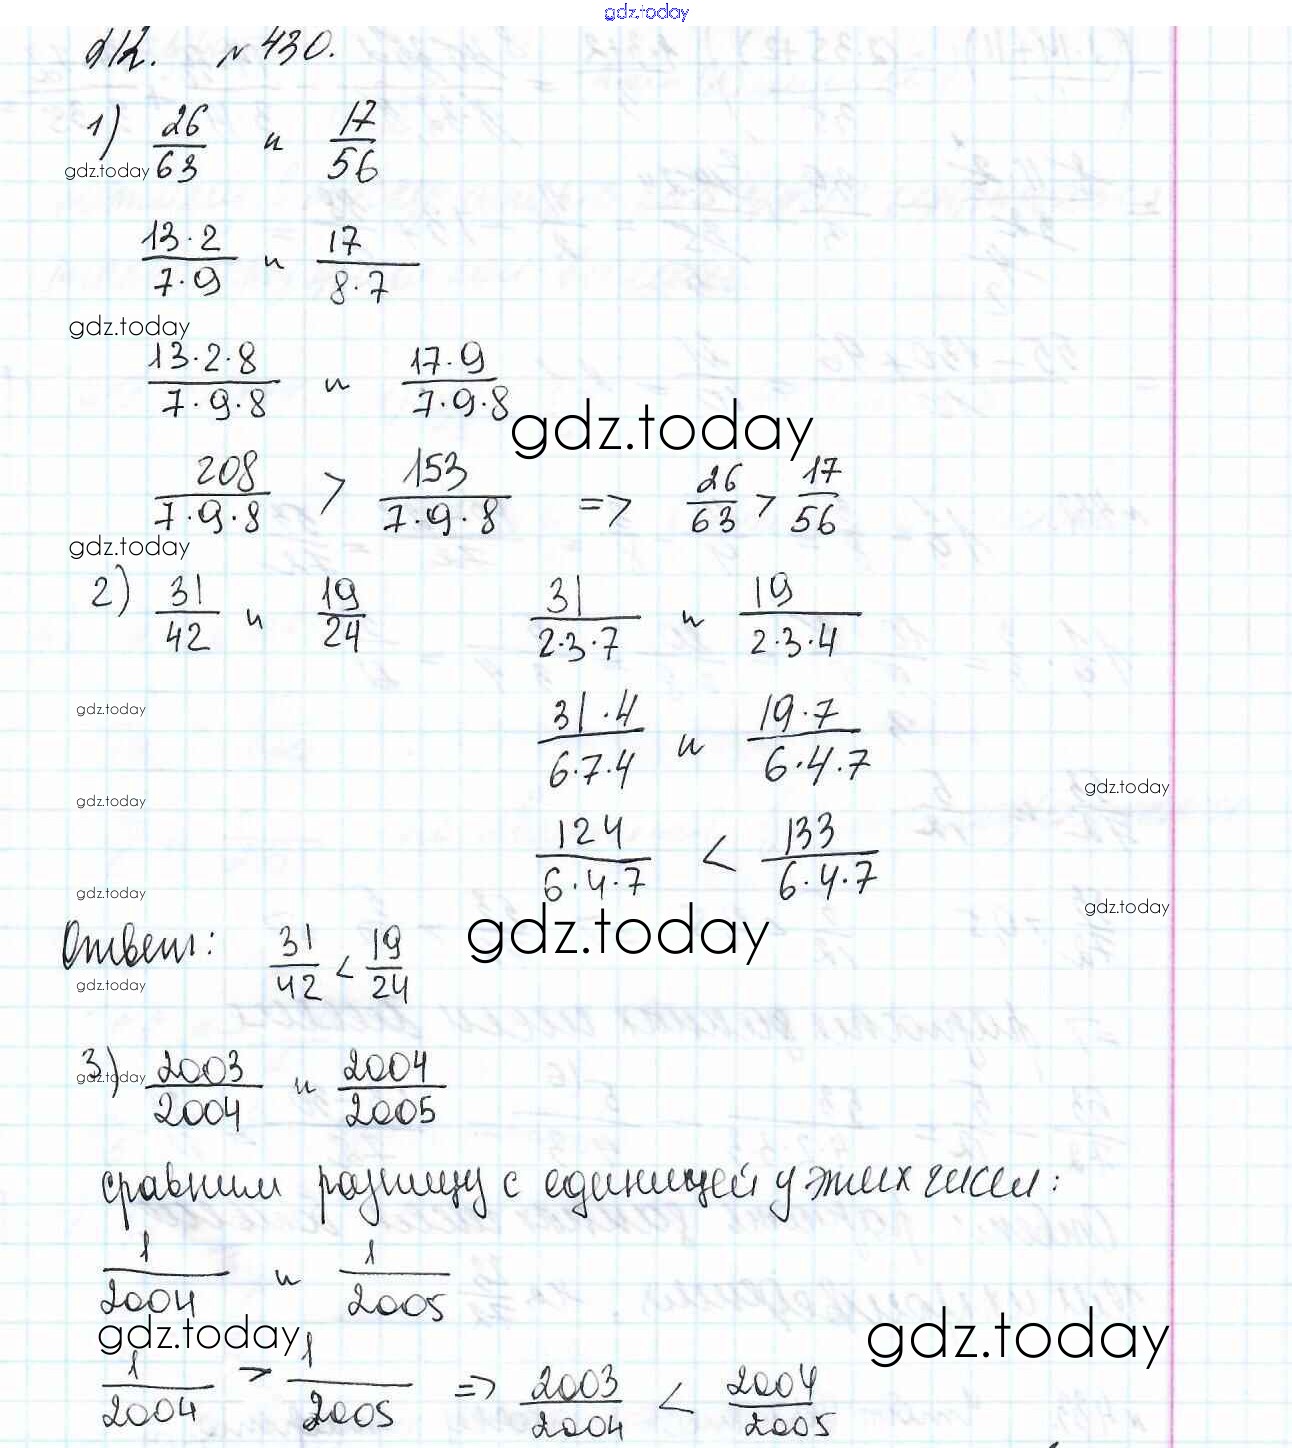 gdz.today
д12. №430.
1) 26/63 и 17/56
gdz.today
13·2/7·9 и 17/8·7
gdz.today
13·2·8/7·9·8 и 17·9/7·9·8
gdz.today
208/7·9·8 > 153/7·9·8 => 26/63 > 17/56
gdz.today
2) 31/42 и 19/24 31/2·3·7 и 19/2·3·4
gdz.today
31·4/6·7·4 и 19·7/6·4·7
gdz.today
gdz.today
124/6·4·7 < 133/6·4·7
gdz.today
gdz.today
gdz.today
Ответ: 31/42 < 19/24
gdz.today
3) 2003/2004 и 2004/2005
gdz.today
сравним разницу с единицей у этих чисел:
1/2004 и 1/2005
gdz.today
gdz.today
1/2004 > 1/2005 => 2003/2004 < 2004/2005